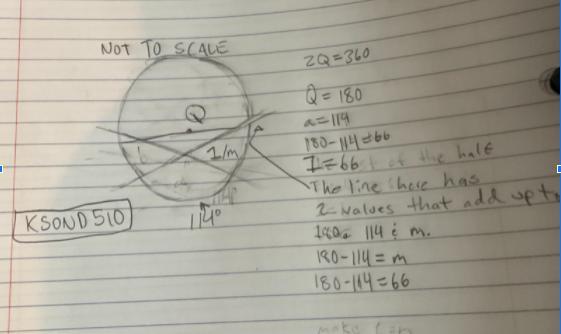 NOT TO SCALE
Q
A
b
1/m
114°
114°
KSOND510
2Q=360
Q=180
a=114
180-114=66
1=66 of the half
The line here has
2 values that add up to
180. 114 & m.
180-114=m
180-114=66
make